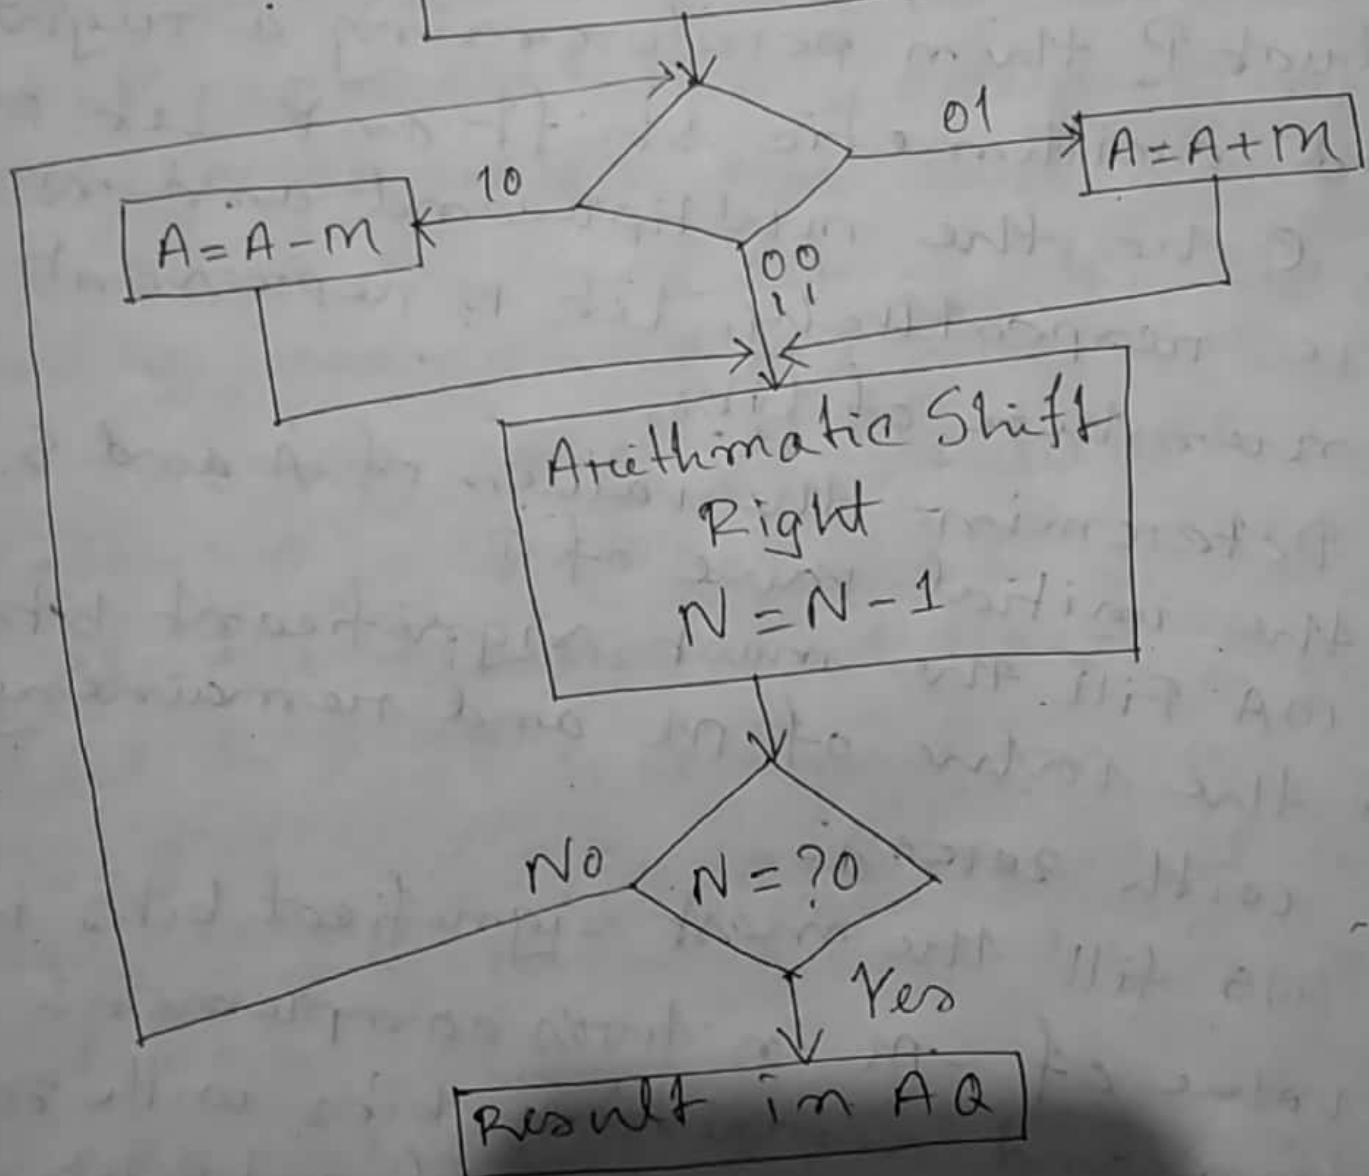 01
A=A+M
10
A=A-M
00
11
Arithimatic Shift
Right
N=N-1
No
N=?0
Yes
Result in AQ